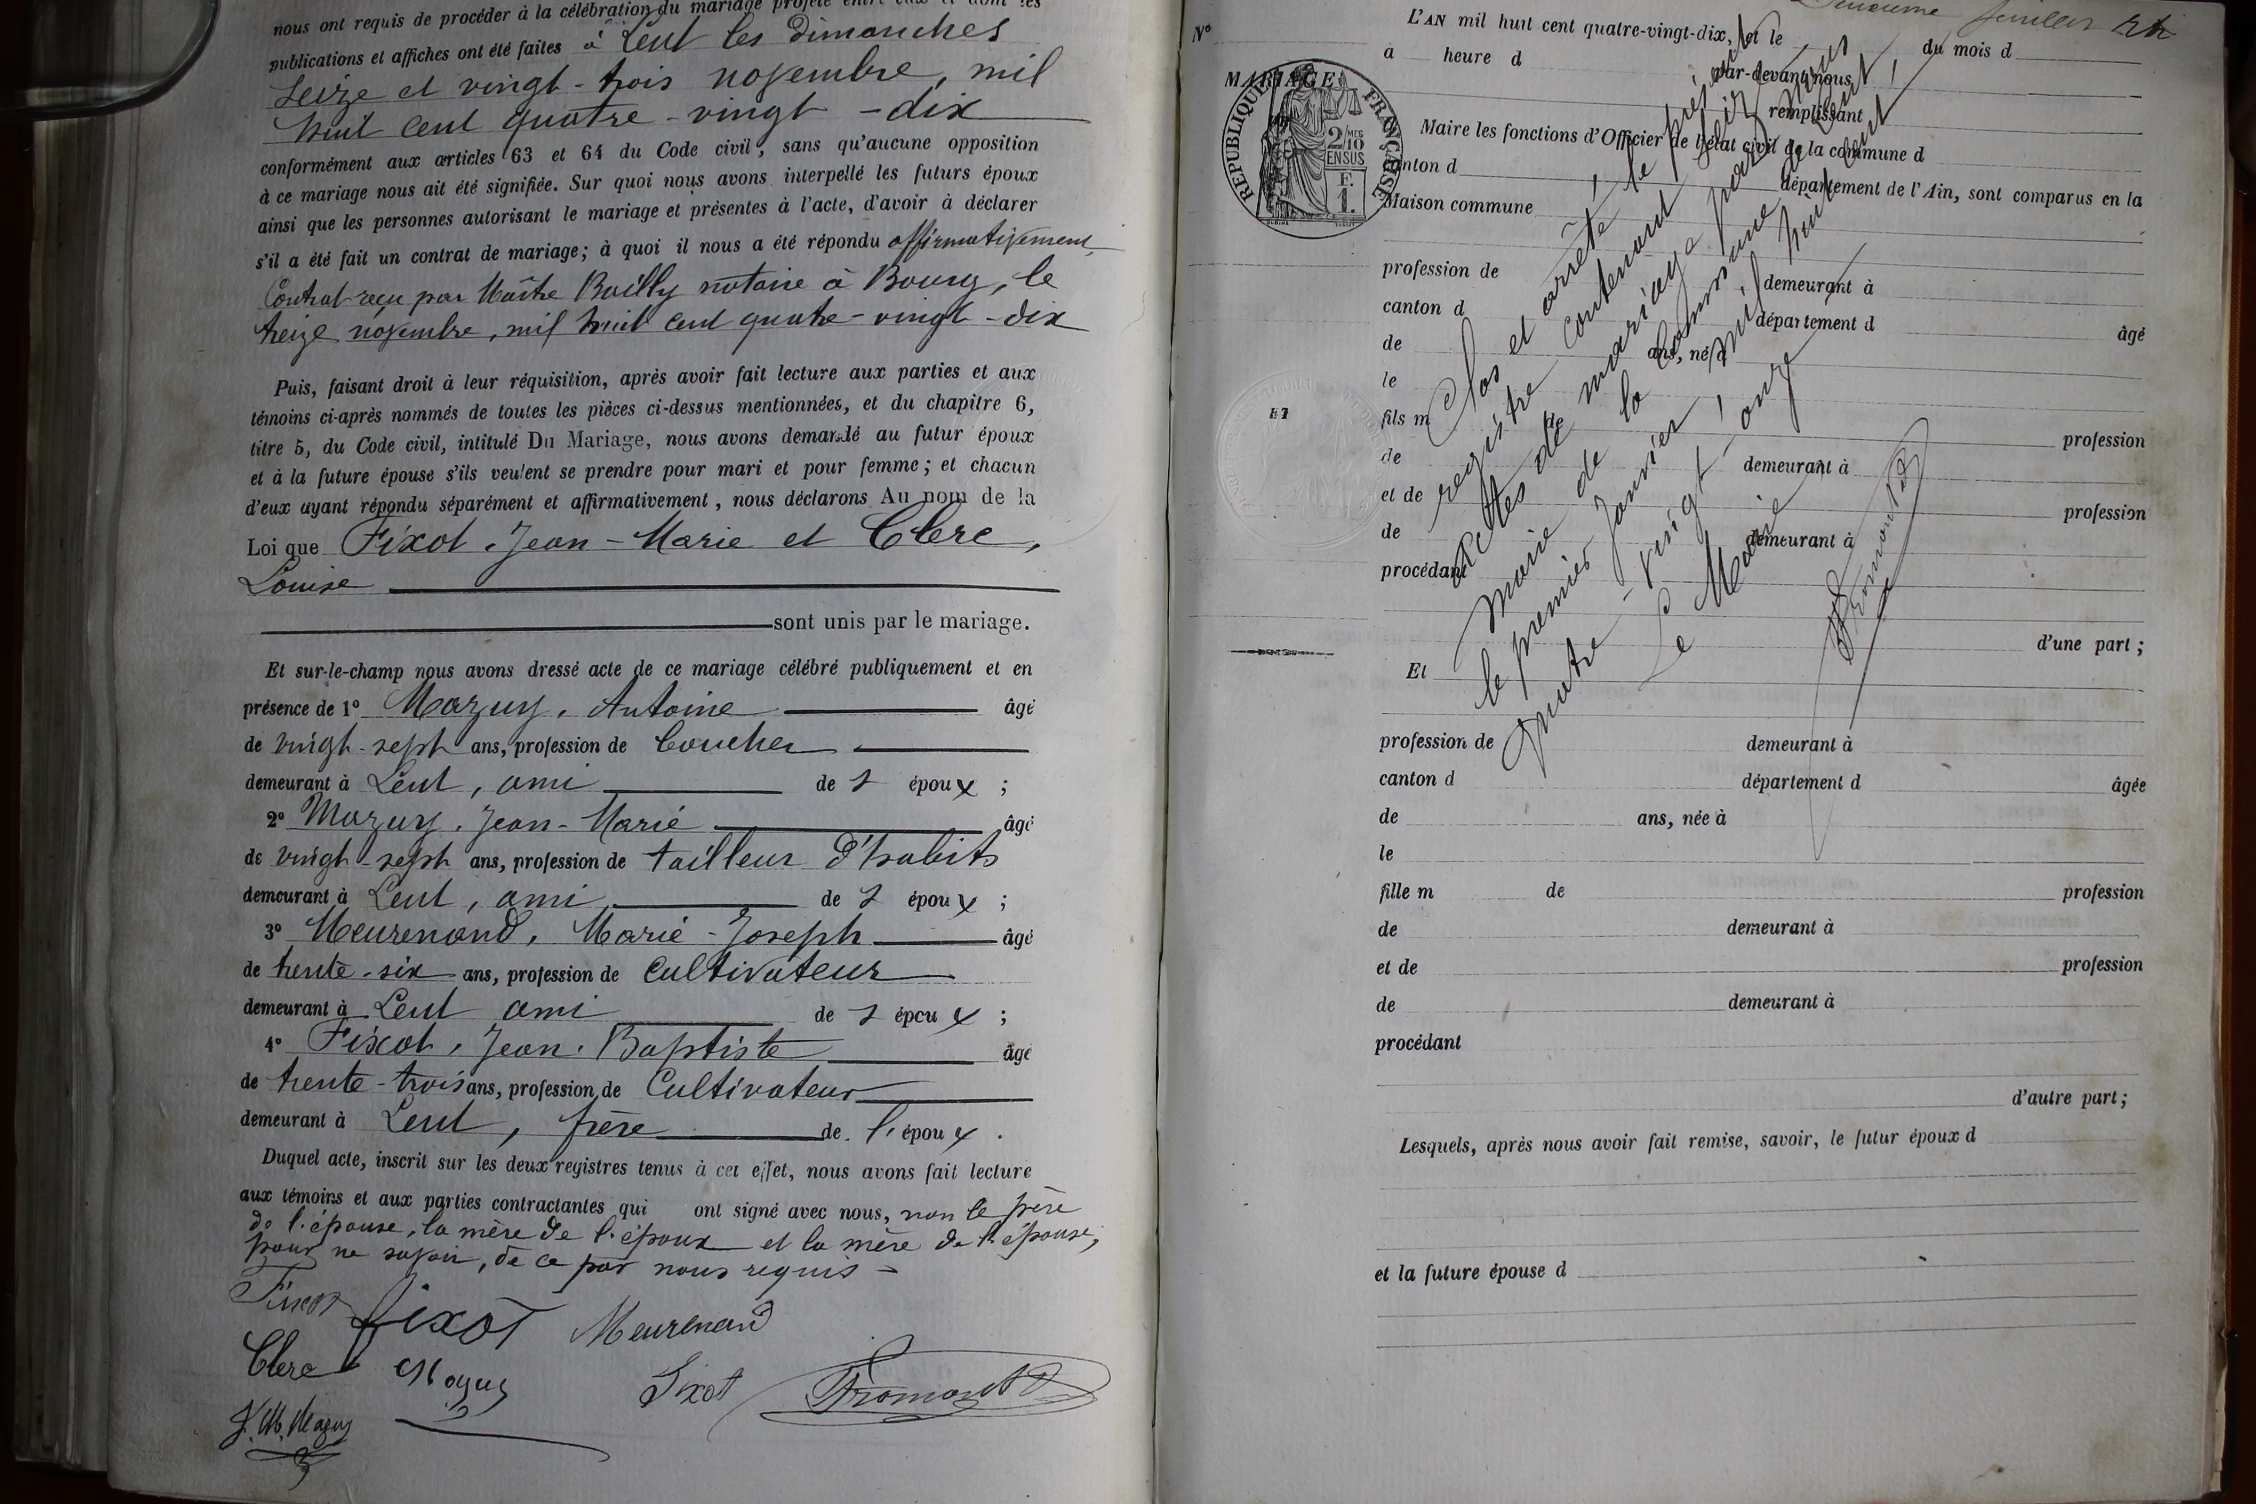 nous ont requis de procéder à la célébration du mariage projeté entre eux et dont les
publications et affiches ont été faites à Lent les dimanches
seize et vingt-trois novembre, mil
huit cent quatre-vingt-dix
conformément aux articles 63 et 64 du Code civil, sans qu'aucune opposition
à ce mariage nous ait été signifiée. Sur quoi nous avons interpellé les futurs époux
ainsi que les personnes autorisant le mariage et présentes à l'acte, d'avoir à déclarer
s'il a été fait un contrat de mariage; à quoi il nous a été répondu affirmativement,
Contrat reçu par Maître Bailly notaire à Bourg, le
treize novembre, mil huit cent quatre-vingt-dix
Puis, faisant droit à leur réquisition, après avoir fait lecture aux parties et aux
témoins ci-après nommés de toutes les pièces ci-dessus mentionnées, et du chapitre 6,
titre 5, du Code civil, intitulé Du Mariage, nous avons demandé au futur époux
et à la future épouse s'ils veulent se prendre pour mari et pour femme; et chacun
d'eux ayant répondu séparément et affirmativement, nous déclarons Au nom de la
Loi que Fixot, Jean-Marie et Clerc,
Louise
sont unis par le mariage.
Et sur-le-champ nous avons dressé acte de ce mariage célébré publiquement et en
présence de 1° Mazuy, Antoine âgé
de vingt-sept ans, profession de boucher
demeurant à Lent, ami de l' époux ;
2° Mazuy, Jean-Marie âgé
de vingt-sept ans, profession de tailleur d'habits
demeurant à Lent, ami de l' époux ;
3° Meurenand, Marie-Joseph âgé
de trente-six ans, profession de cultivateur
demeurant à Lent ami de l' époux ;
4° Fixot, Jean-Baptiste âgé
de trente-trois ans, profession de Cultivateur
demeurant à Lent, frère de l'époux .
Duquel acte, inscrit sur les deux registres tenus à cet effet, nous avons fait lecture
aux témoins et aux parties contractantes qui ont signé avec nous, non le père
de l'épouse, la mère de l'époux et la mère de l'épouse,
pour ne savoir, de ce par nous requis
Fixot fixot Meurenand
Clerc Mazuy Fixot Fromont
J. M. Mazuy
N°
MARIAGE
RÉPUBLIQUE FRANÇAISE
2/10 MES
EN SUS
F.
1.
L'AN mil huit cent quatre-vingt-dix, et le du mois d
à heure d par-devant nous,
remplissant
Maire les fonctions d'Officier de l'état civil de la commune d
canton d département de l'Ain, sont comparus en la
Maison commune
profession de demeurant à
canton d département d âgé
de ans, né à
le
fils m de profession
de demeurant à
et de profession
de demeurant à
procédant
d'une part ;
Et
profession de demeurant à
canton d département d âgée
de ans, née à
le
fille m de profession
de demeurant à
et de profession
de demeurant à
procédant
d'autre part ;
Lesquels, après nous avoir fait remise, savoir, le futur époux d
et la future épouse d
Clos et arrêté le présent
registre contenant
actes de mariage par nous
maire de la commune de Lent,
le premier Janvier, mil huit cent
quatre-vingt-onze
Le Maire
Fromont